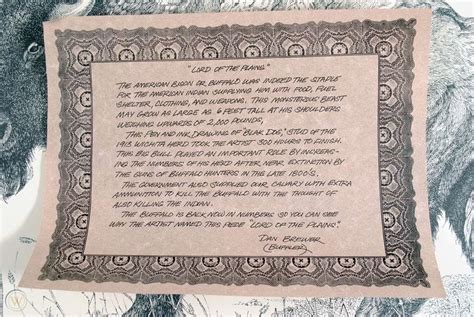 "LORD OF THE PLAINS"
THE AMERICAN BISON OR BUFFALO WAS INDEED THE STAPLE
FOR THE AMERICAN INDIAN SUPPLYING HIM WITH FOOD, FUEL
SHELTER, CLOTHING, AND WEAPONS. THIS MONSTEROUS BEAST
MAY GROW AS LARGE AS 6 FEET TALL AT HIS SHOULDERS
WEIGHING UPWARDS OF 2,000 POUNDS,
THIS PEN AND INK DRAWING OF "BLAK DOG," STUD OF THE
1913 WICHITA HERD TOOK THE ARTIST 300 HOURS TO FINISH.
THIS BIG BULL PLAYED AN IMPORTANT ROLE BY INCREAS-
ING THE NUMBERS OF HIS HERD AFTER NEAR EXTINCTION BY
THE GUNS OF BUFFALO HUNTERS IN THE LATE 1800'S.
THE GOVERNMENT ALSO SUPPLIED OUR CALVARY WITH EXTRA
AMMUNITION TO KILL THE BUFFALO WITH THE THOUGHT OF
ALSO KILLING THE INDIAN.
THE BUFFALO IS BACK NOW IN NUMBERS SO YOU CAN SEE
WHY THE ARTIST NAMED THIS PIECE "LORD OF THE PLAINS."
DAN BREWER